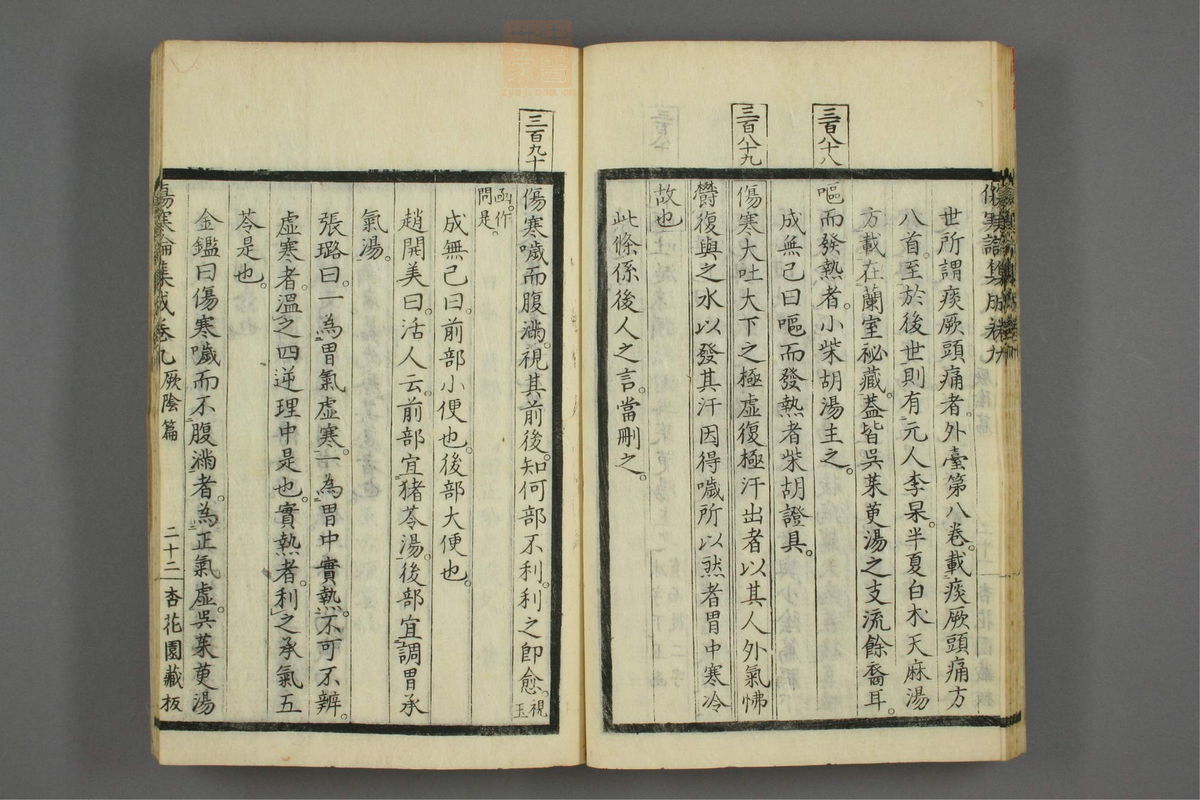 世所謂痰厥頭痛者。外臺第八卷。載痰厥頭痛方
八首。至於後世則有元人李杲。半夏白朮天麻湯
方載在蘭室祕藏。葢皆吳茱萸湯之支流餘裔耳。
三百八十八
嘔而發熱者。小柴胡湯主之。
成無己曰嘔而發熱者柴胡證具。
三百八十九
傷寒大吐大下之極虛復極汗出者以其人外氣怫
欝復與之水以發其汗因得噦所以然者胃中寒冷
故也
此條係後人之言。當刪之。
三百九十
傷寒噦而腹滿。視其前後。知何部不利。利之卽愈。視玉
函。作問是。
成無己曰。前部小便也。後部大便也。
趙開美曰。活人云。前部宜猪苓湯。後部宜調胃承
氣湯。
張璐曰。一為胃氣虛寒。一為胃中實熱。不可不辨。
虛寒者。溫之四逆理中是也。實熱者。利之承氣五
苓是也。
金鑑曰傷寒噦而不腹滿者。為正氣虛。吳茱萸湯
傷寒論集成卷九 厥陰篇 二十二 杏花園藏板